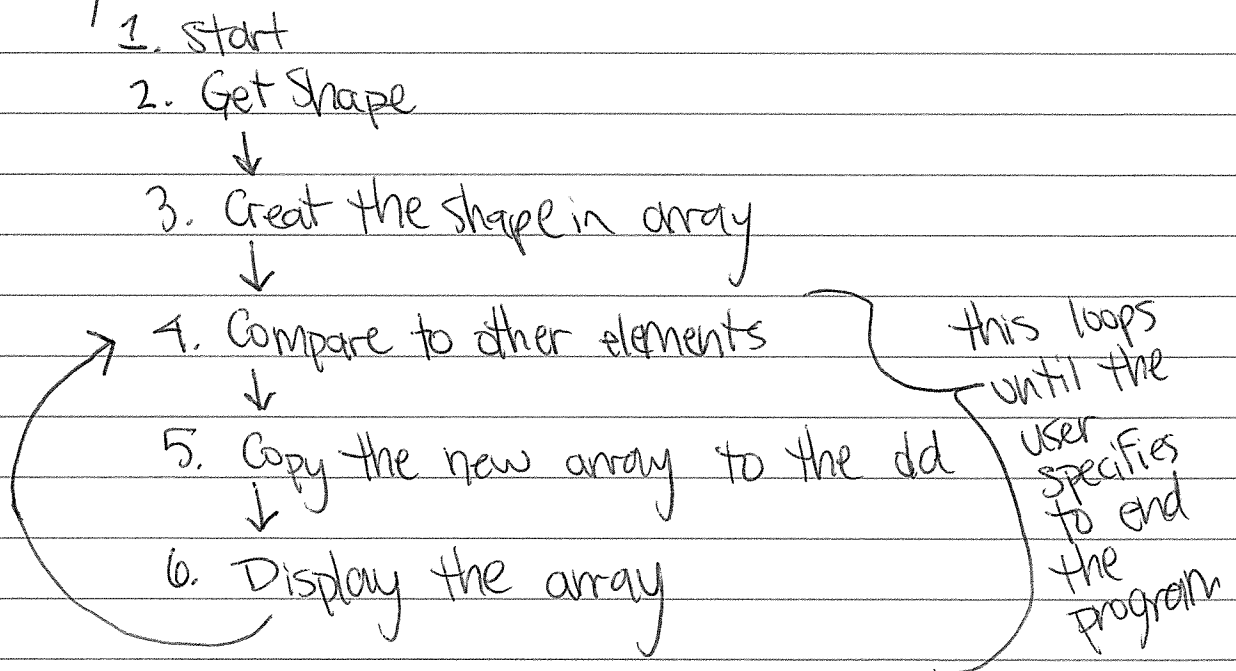 1. Start
2. Get Shape
3. Creat the shape in array
4. Compare to other elements
5. Copy the new array to the old
6. Display the array
this loops
until the
user
specifies
to end
the
program